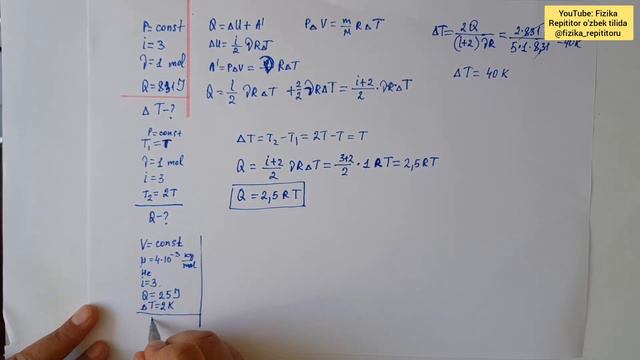 YouTube: Fizika
Repititor o'zbek tilida
@fizika_repititoru
P=const
i=3
ν=1 mol
Q=831J
ΔT-?
Q=ΔU+A'
ΔU=i/2 νRΔT
A'=PΔV=νRΔT
Q=i/2 νRΔT+2/2 νRΔT=(i+2)/2·νRΔT
PΔV=m/M RΔT
ΔT=2Q/((i+2)νR)=2·831/(5·1·8,31)=40K
ΔT=40K
P=const
T₁=T
ν=1 mol
i=3
T₂=2T
Q-?
ΔT=T₂-T₁=2T-T=T
Q=(i+2)/2 νRΔT=(3+2)/2·1RT=2,5RT
Q=2,5RT
V=const
μ=4·10⁻³ kg/mol
He
i=3
Q=25J
ΔT=2K